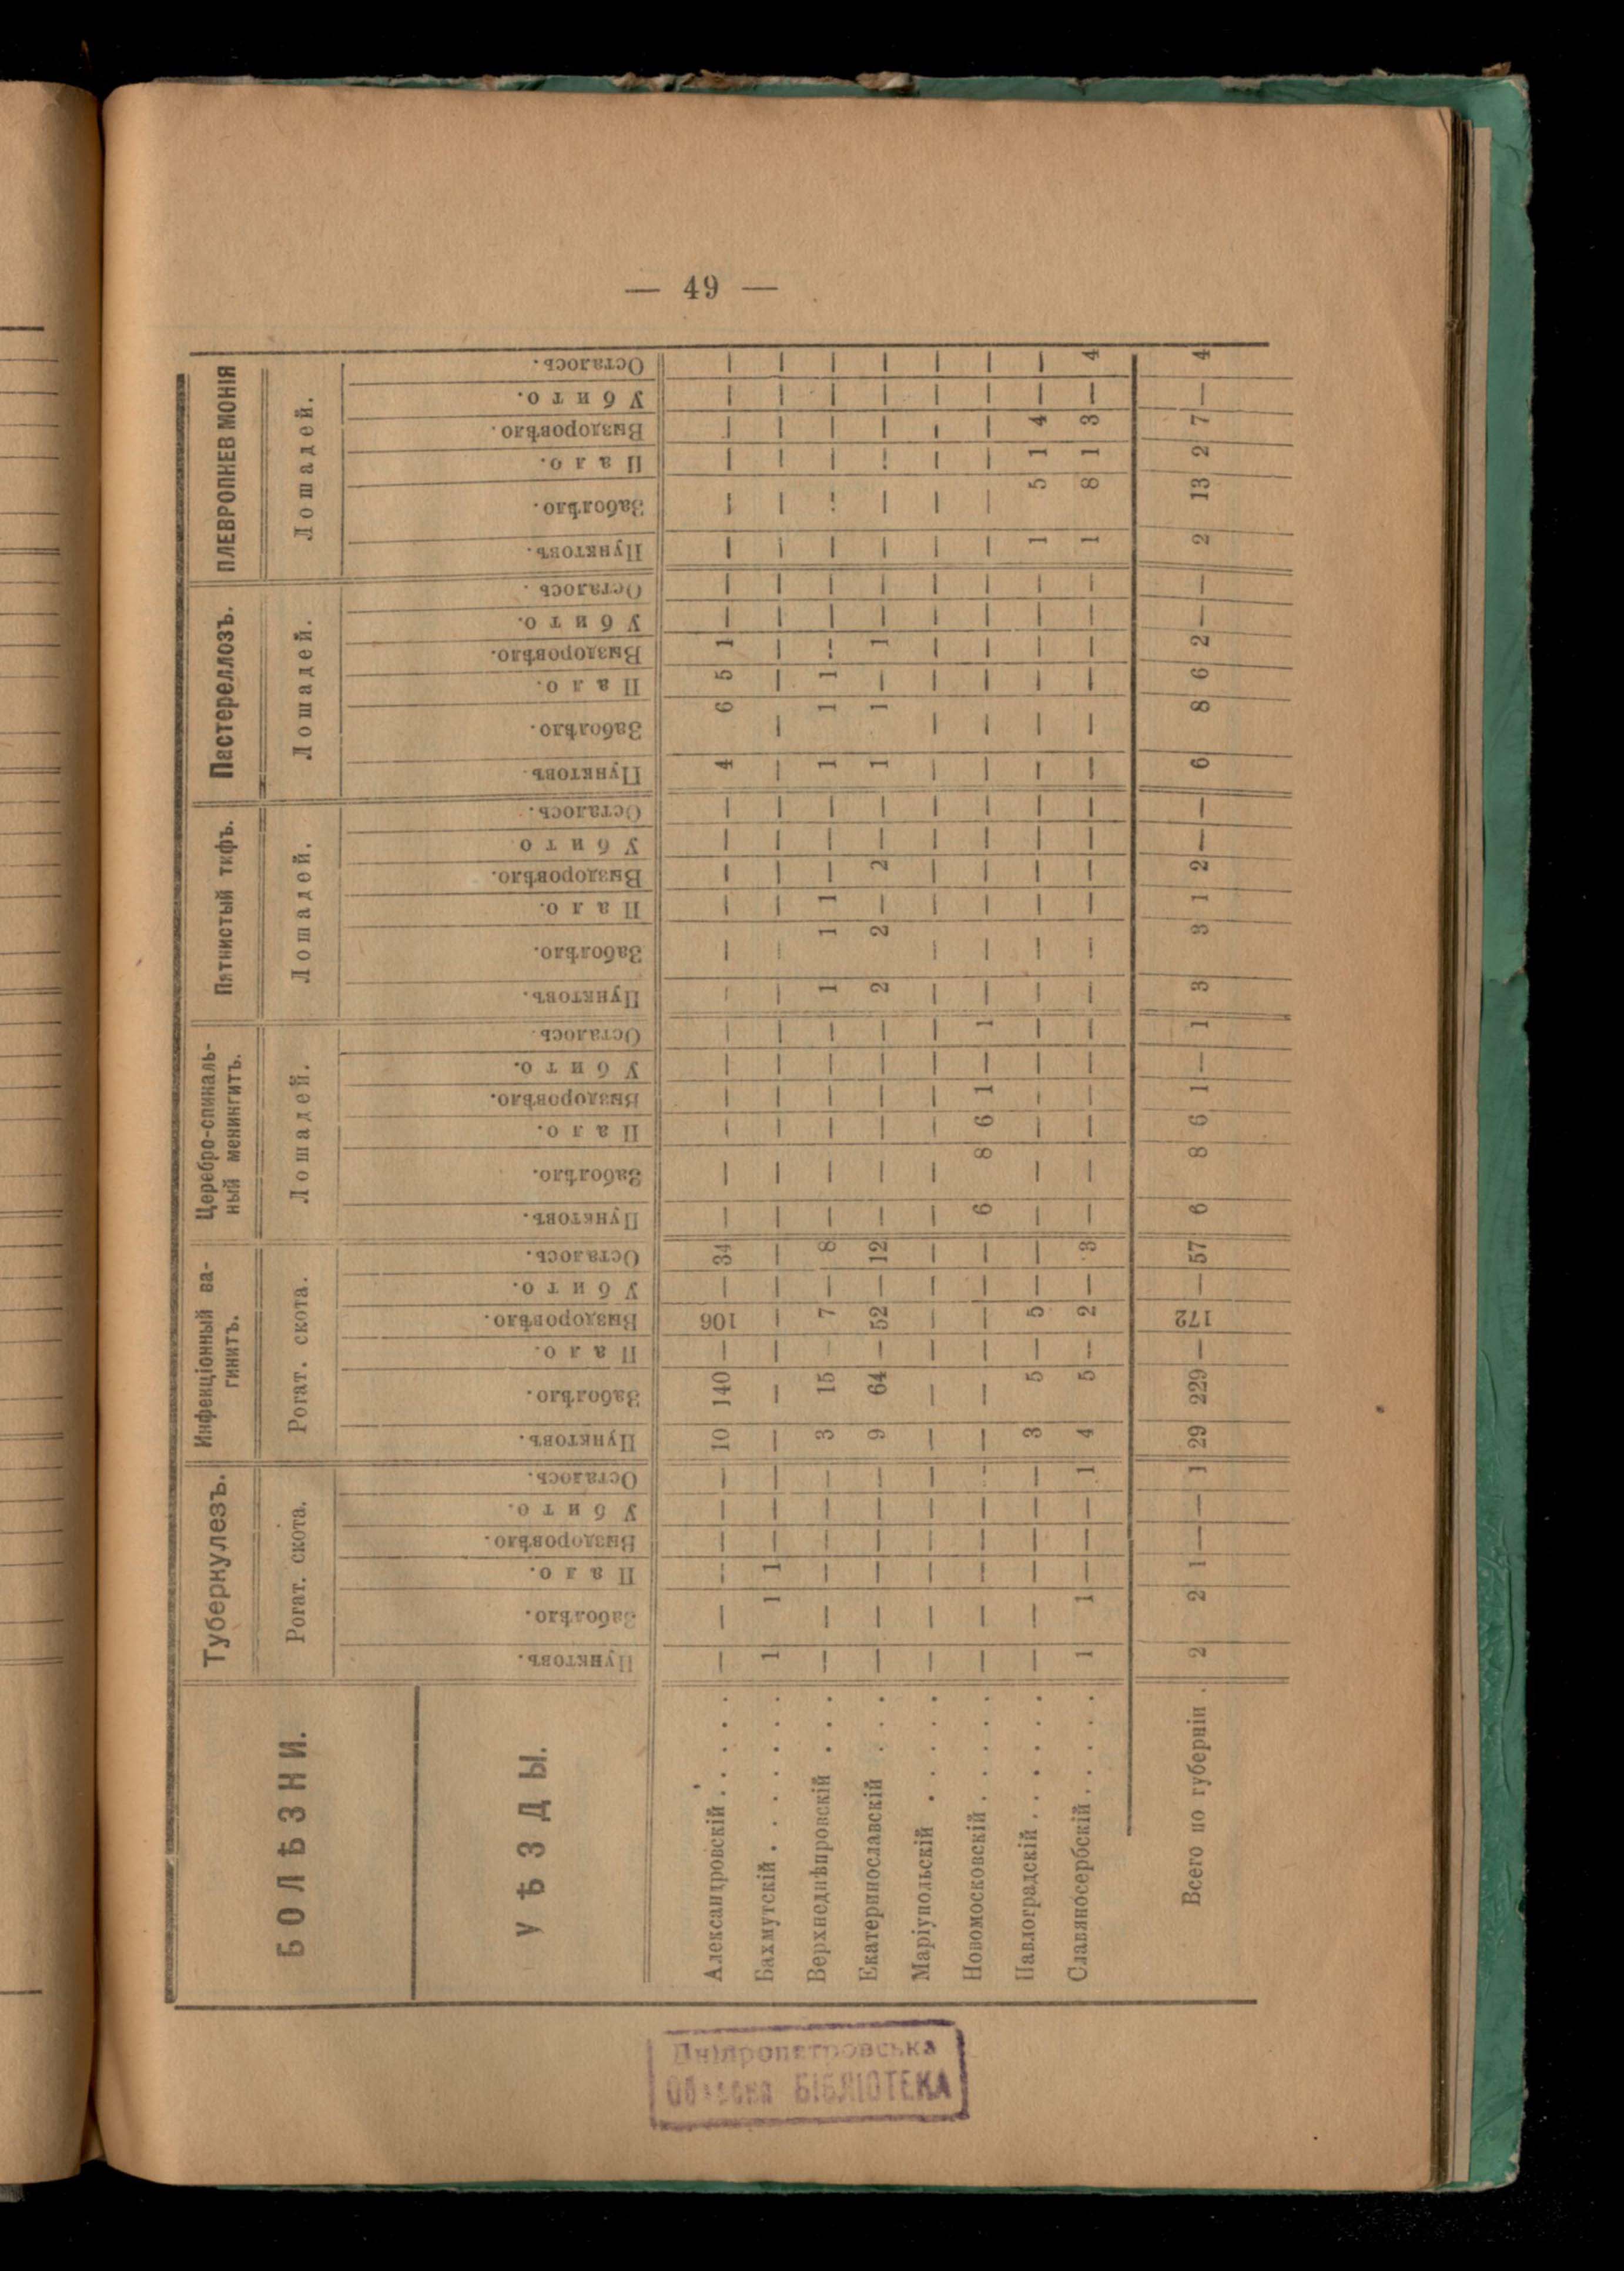 — 49 —
БОЛѢЗНИ. Туберкулезъ. Инфекціонный ва- Церебро-спиналь- Пятнистый тифъ. Пастереллозъ. ПЛЕВРОПНЕВМОНІЯ
гинитъ. ный менингитъ.
Рогат. скота. Рогат. скота. Лошадей. Лошадей. Лошадей. Лошадей.
УѢЗДЫ. Пунктовъ. Заболѣло. Пало. Выздоровѣло. Убито. Осталось. Пунктовъ. Заболѣло. Пало. Выздоровѣло. Убито. Осталось. Пунктовъ. Заболѣло. Пало. Выздоровѣло. Убито. Осталось. Пунктовъ. Заболѣло. Пало. Выздоровѣло. Убито Осталось. Пунктовъ. Заболѣло. Пало. Выздоровѣло. Убито. Осталось. Пунктовъ. Заболѣло. Пало. Выздоровѣло. Убито. Осталось.
Александровскій . . . . . — — — — — — 10 140 — 106 — 34 — — — — — — — — — — — — 4 6 5 1 — — — — — — — —
Бахмутскій . . . . . . 1 1 1 — — — — — — — — — — — — — — — — — — — — — — — — — — — — — — — — —
Верхнеднѣпровскій . . . — — — — — — 3 15 — 7 — 8 — — — — — — 1 1 1 — — — 1 1 1 — — — — — — — — —
Екатеринославскій . . . — — — — — — 9 64 — 52 — 12 — — — — — — 2 2 — 2 — — 1 1 — 1 — — — — — — — —
Маріупольскій . . . . . — — — — — — — — — — — — — — — — — — — — — — — — — — — — — — — — — — — —
Новомосковскій . . . . — — — — — — — — — — — — 6 8 6 1 — 1 — — — — — — — — — — — — — — — — — —
Павлоградскій . . . . . — — — — — — 3 5 — 5 — — — — — — — — — — — — — — — — — — — — 1 5 1 4 — —
Славяносербскій . . . . 1 1 — — — 1 4 5 — 2 — 3 — — — — — — — — — — — — — — — — — — 1 8 1 3 — 4
Всего по губерніи . 2 2 1 — — 1 29 229 — 172 — 57 6 8 6 1 — 1 3 3 1 2 — — 6 8 6 2 — — 2 13 2 7 — 4
Дніпропетровська
Обласна БІБЛІОТЕКА